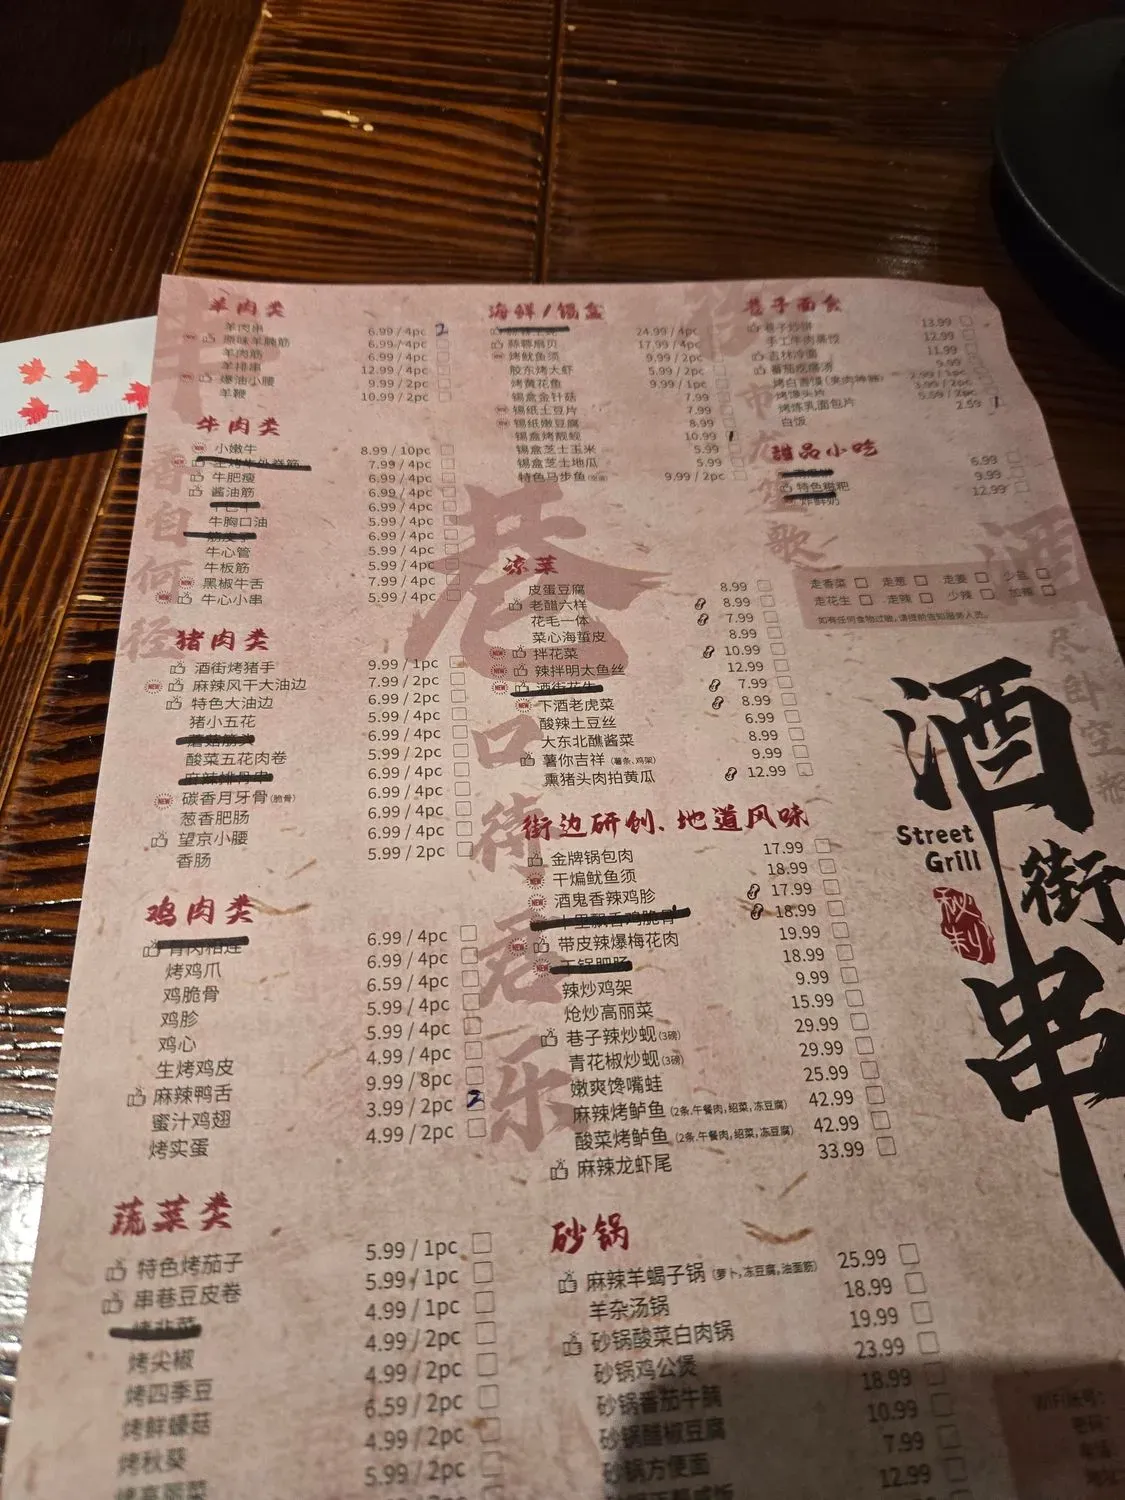 羊肉类
羊肉串 6.99 / 4pc 2
原味羊腩筋 6.99 / 4pc
羊肉筋 6.99 / 4pc
羊排串 12.99 / 4pc
爆油小腰 9.99 / 2pc
羊鞭 10.99 / 2pc
牛肉类
小嫩牛 8.99 / 10pc
7.99 / 4pc
牛肥瘦 6.99 / 4pc
酱油筋 6.99 / 4pc
6.99 / 4pc
牛胸口油 5.99 / 4pc
6.99 / 4pc
牛心管 5.99 / 4pc
牛板筋 5.99 / 4pc
黑椒牛舌 7.99 / 4pc
牛心小串 5.99 / 4pc
猪肉类
酒街烤猪手 9.99 / 1pc
麻辣风干大油边 7.99 / 2pc
特色大油边 5.99 / 2pc
猪小五花 5.99 / 4pc
蘑菇筋头 6.99 / 4pc
酸菜五花肉卷 5.99 / 2pc
麻辣排骨串 6.99 / 4pc
碳香月牙骨(脆骨) 6.99 / 4pc
葱香肥肠 6.99 / 4pc
望京小腰 6.99 / 4pc
香肠 5.99 / 2pc
鸡肉类
骨肉相连 6.99 / 4pc
烤鸡爪 6.99 / 4pc
鸡脆骨 6.59 / 4pc
鸡胗 5.99 / 4pc
鸡心 5.99 / 4pc
生烤鸡皮 4.99 / 4pc
麻辣鸭舌 9.99 / 8pc
蜜汁鸡翅 3.99 / 2pc 2
烤实蛋 4.99 / 2pc
蔬菜类
特色烤茄子 5.99 / 1pc
串巷豆皮卷 5.99 / 1pc
烤韭菜 4.99 / 1pc
烤尖椒 4.99 / 2pc
烤四季豆 4.99 / 2pc
烤鲜蠔菇 6.59 / 2pc
烤秋葵 4.99 / 2pc
烤高丽菜 5.99 / 2pc
海鲜 / 锡盒
24.99 / 4pc
蒜蓉扇贝 17.99 / 4pc
烤鱿鱼须 9.99 / 2pc
胶东烤大虾 5.99 / 2pc
烤黄花鱼 9.99 / 1pc
锡盒金针菇 7.99
锡纸土豆片 7.99
锡纸嫩豆腐 8.99
锡盒烤靓蚬 10.99 1
锡盒芝士玉米 5.99
锡盒芝士地瓜 5.99
特色马步鱼 9.99 / 2pc
凉菜
皮蛋豆腐 8.99
老醋六样 8.99
花毛一体 7.99
菜心海蜇皮 8.99
拌花菜 10.99
辣拌明太鱼丝 12.99
酒街花生 7.99
下酒老虎菜 8.99
酸辣土豆丝 6.99
大东北蘸酱菜 8.99
薯你吉祥(薯条,鸡架) 9.99
熏猪头肉拍黄瓜 12.99
街边研创、地道风味
金牌锅包肉 17.99
干煸鱿鱼须 18.99
酒鬼香辣鸡胗 17.99
十里飘香鸡脆骨 18.99
带皮辣爆梅花肉 19.99
干锅肥肠 18.99
辣炒鸡架 9.99
炝炒高丽菜 15.99
巷子辣炒蚬(3磅) 29.99
青花椒炒蚬(3磅) 29.99
嫩爽馋嘴蛙 25.99
麻辣烤鲈鱼(2条,午餐肉,绍菜,冻豆腐) 42.99
酸菜烤鲈鱼(2条,午餐肉,绍菜,冻豆腐) 42.99
麻辣龙虾尾 33.99
砂锅
麻辣羊蝎子锅(萝卜,冻豆腐,油面筋) 25.99
羊杂汤锅 18.99
砂锅酸菜白肉锅 19.99
砂锅鸡公煲 23.99
砂锅番茄牛腩 18.99
砂锅醋椒豆腐 10.99
砂锅方便面 7.99
12.99
巷子面食
巷子炒饼 13.99
手工牛肉蒸饺 12.99
吉林冷面 11.99
番茄疙瘩汤 9.99
烤白吉馍(夹肉神器) 2.99 / 1pc
烤馒头片 3.99 / 2pc
烤炼乳面包片 5.59 / 2pc
白饭 2.59 1
甜品小吃
6.99
特色糍粑 9.99
炸鲜奶 12.99
走香菜 走葱 走姜 少盐
走花生 走辣 少辣 加辣
如有任何食物过敏,请提前告知服务人员。
巷口街君乐
酒街串
Street
Grill
秘制
WiFi账号:
密码: